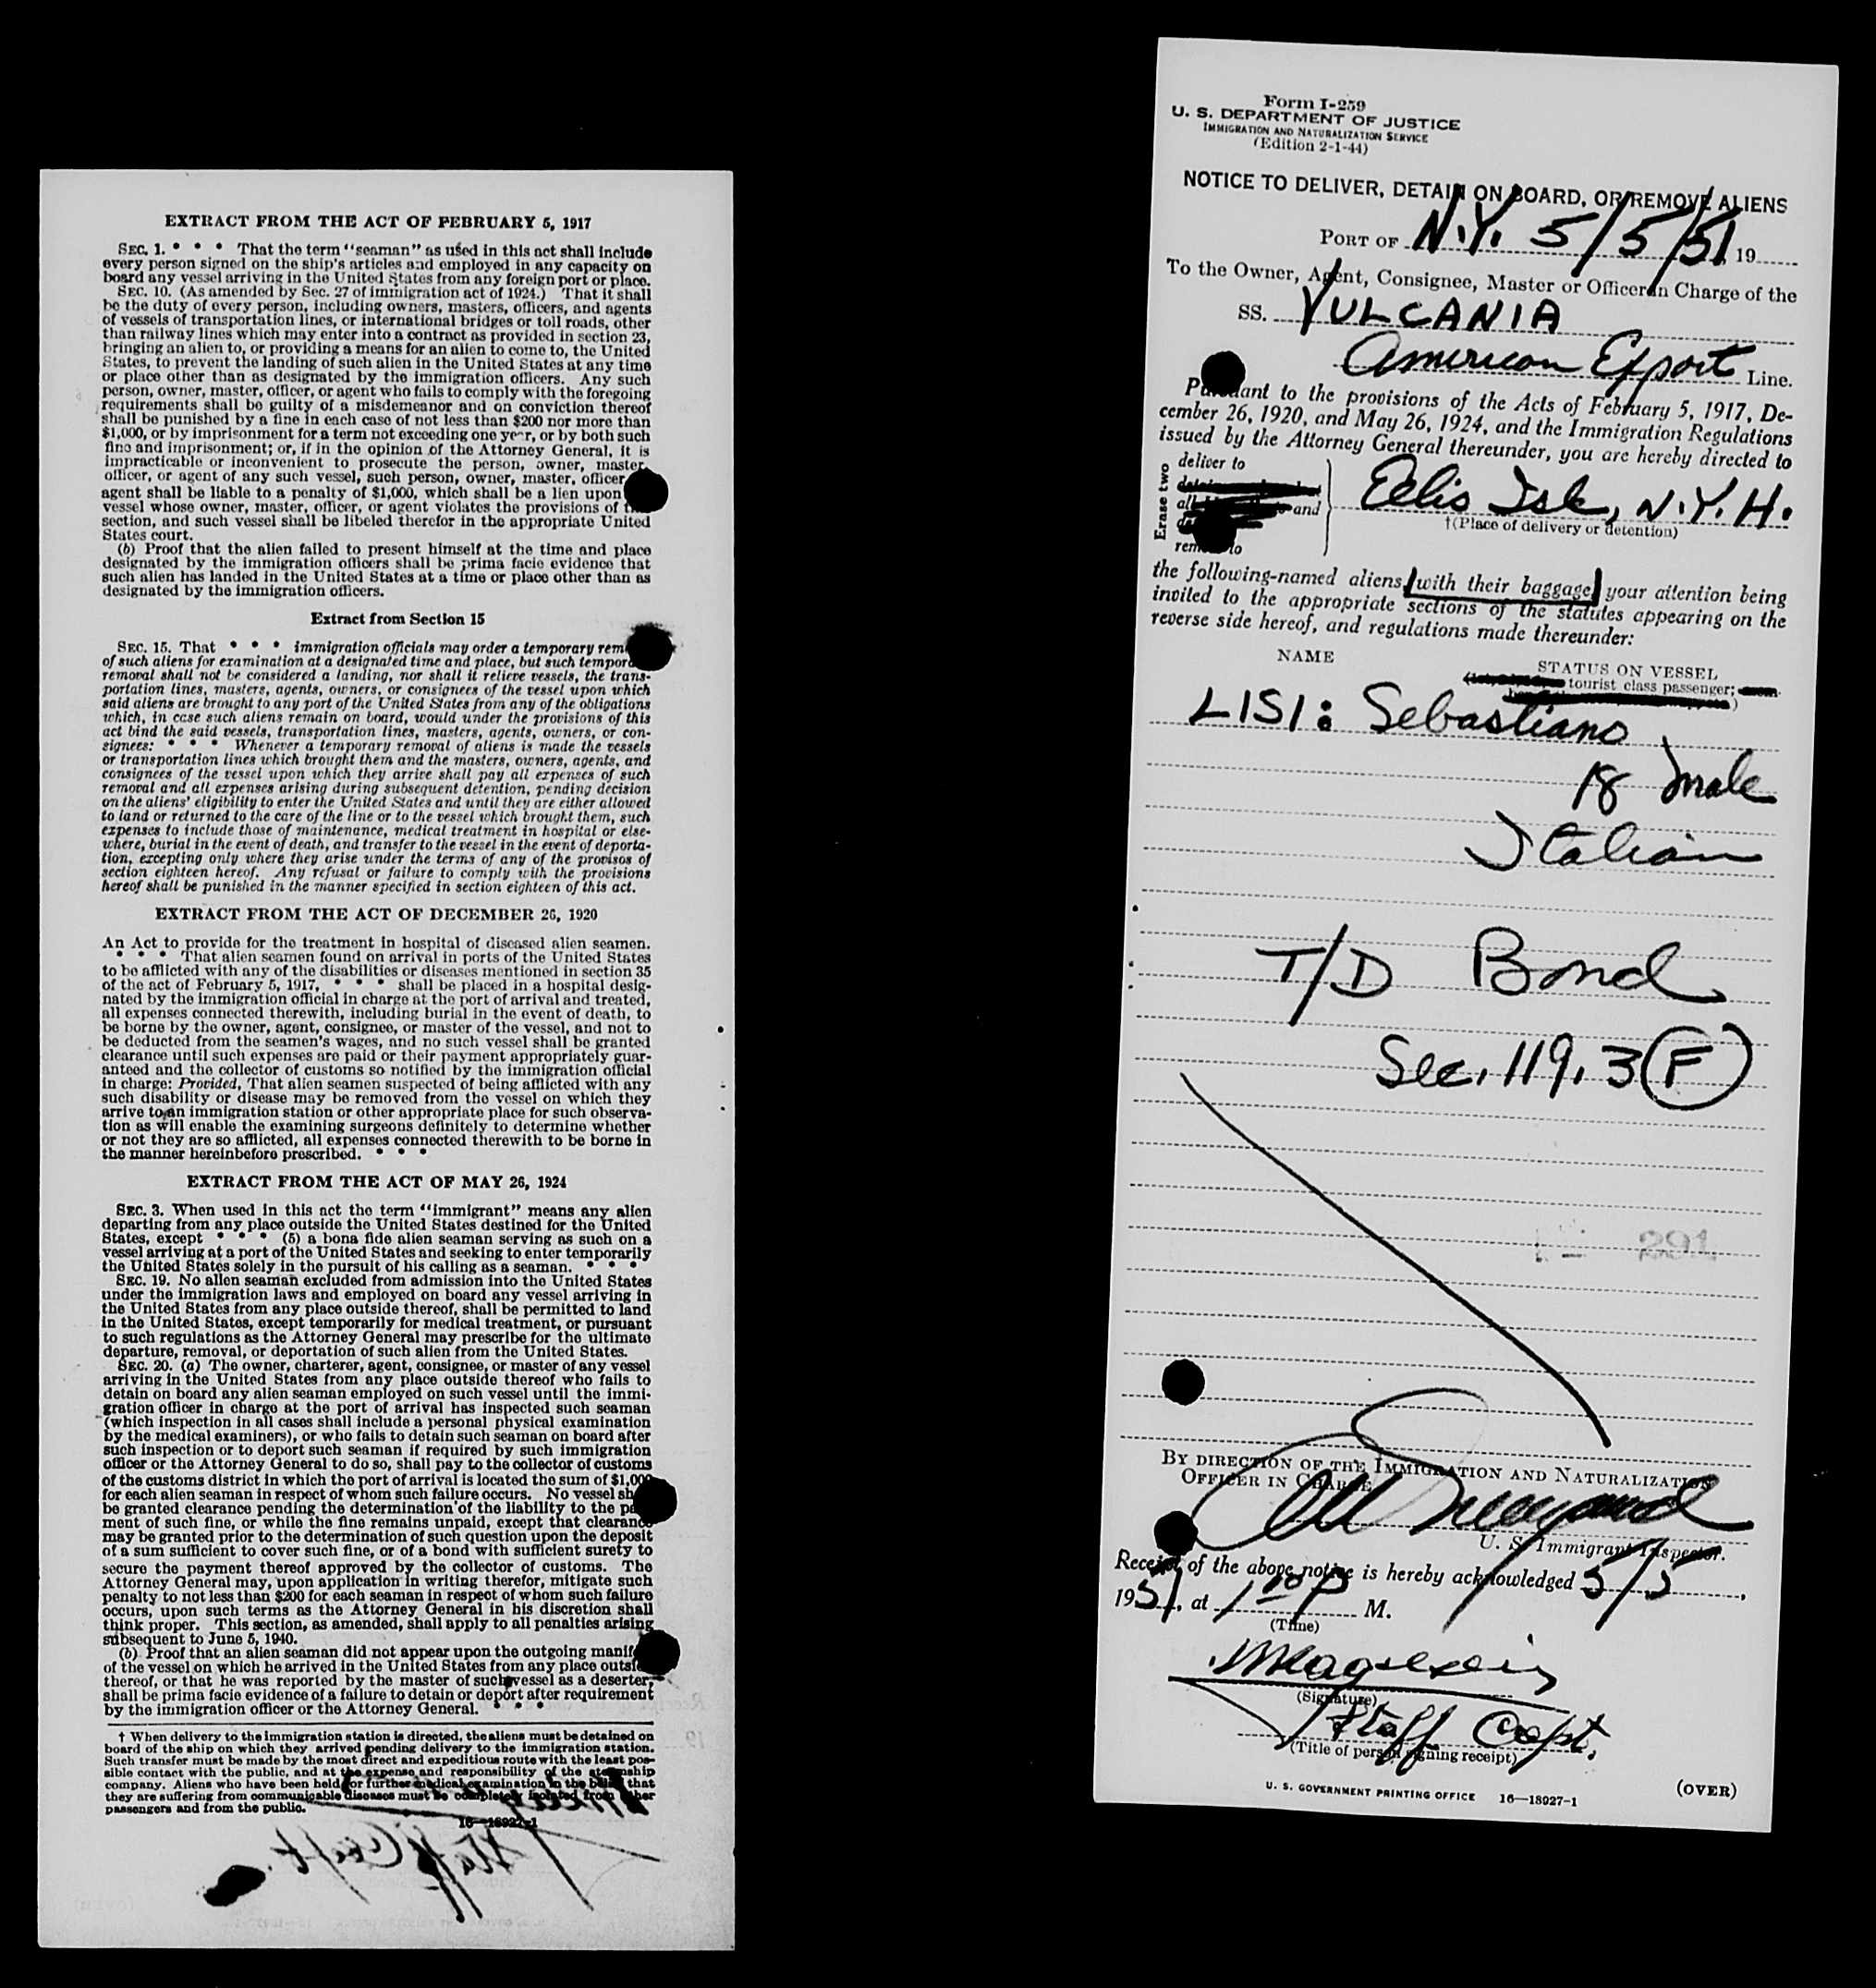 EXTRACT FROM THE ACT OF FEBRUARY 5, 1917
SEC. 1. * * * That the term "seaman" as used in this act shall include
every person signed on the ship's articles and employed in any capacity on
board any vessel arriving in the United States from any foreign port or place.
SEC. 10. (As amended by Sec. 27 of immigration act of 1924.) That it shall
be the duty of every person, including owners, masters, officers, and agents
of vessels of transportation lines, or international bridges or toll roads, other
than railway lines which may enter into a contract as provided in section 23,
bringing an alien to, or providing a means for an alien to come to, the United
States, to prevent the landing of such alien in the United States at any time
or place other than as designated by the immigration officers. Any such
person, owner, master, officer, or agent who fails to comply with the foregoing
requirements shall be guilty of a misdemeanor and on conviction thereof
shall be punished by a fine in each case of not less than $200 nor more than
$1,000, or by imprisonment for a term not exceeding one year, or by both such
fine and imprisonment; or, if in the opinion of the Attorney General, it is
impracticable or inconvenient to prosecute the person, owner, master,
officer, or agent of any such vessel, such person, owner, master, officer,
agent shall be liable to a penalty of $1,000, which shall be a lien upon
vessel whose owner, master, officer, or agent violates the provisions of this
section, and such vessel shall be libeled therefor in the appropriate United
States court.
(b) Proof that the alien failed to present himself at the time and place
designated by the immigration officers shall be prima facie evidence that
such alien has landed in the United States at a time or place other than as
designated by the immigration officers.
Extract from Section 15
SEC. 15. That * * * immigration officials may order a temporary rem
of such aliens for examination at a designated time and place, but such tempora
removal shall not be considered a landing, nor shall it relieve vessels, the trans-
portation lines, masters, agents, owners, or consignees of the vessel upon which
said aliens are brought to any port of the United States from any of the obligations
which, in case such aliens remain on board, would under the provisions of this
act bind the said vessels, transportation lines, masters, agents, owners, or con-
signees: * * * Whenever a temporary removal of aliens is made the vessels
or transportation lines which brought them and the masters, owners, agents, and
consignees of the vessel upon which they arrive shall pay all expenses of such
removal and all expenses arising during subsequent detention, pending decision
on the aliens' eligibility to enter the United States and until they are either allowed
to land or returned to the care of the line or to the vessel which brought them, such
expenses to include those of maintenance, medical treatment in hospital or else-
where, burial in the event of death, and transfer to the vessel in the event of deporta-
tion, excepting only where they arise under the terms of any of the provisos of
section eighteen hereof. Any refusal or failure to comply with the provisions
hereof shall be punished in the manner specified in section eighteen of this act.
EXTRACT FROM THE ACT OF DECEMBER 26, 1920
An Act to provide for the treatment in hospital of diseased alien seamen.
* * * That alien seamen found on arrival in ports of the United States
to be afflicted with any of the disabilities or diseases mentioned in section 35
of the act of February 5, 1917, * * * shall be placed in a hospital desig-
nated by the immigration official in charge at the port of arrival and treated,
all expenses connected therewith, including burial in the event of death, to
be borne by the owner, agent, consignee, or master of the vessel, and not to
be deducted from the seamen's wages, and no such vessel shall be granted
clearance until such expenses are paid or their payment appropriately guar-
anteed and the collector of customs so notified by the immigration official
in charge: Provided, That alien seamen suspected of being afflicted with any
such disability or disease may be removed from the vessel on which they
arrive to an immigration station or other appropriate place for such observa-
tion as will enable the examining surgeons definitely to determine whether
or not they are so afflicted, all expenses connected therewith to be borne in
the manner hereinbefore prescribed. * * *
EXTRACT FROM THE ACT OF MAY 26, 1924
SEC. 3. When used in this act the term "immigrant" means any alien
departing from any place outside the United States destined for the United
States, except * * * (5) a bona fide alien seaman serving as such on a
vessel arriving at a port of the United States and seeking to enter temporarily
the United States solely in the pursuit of his calling as a seaman. * * *
SEC. 19. No alien seaman excluded from admission into the United States
under the immigration laws and employed on board any vessel arriving in
the United States from any place outside thereof, shall be permitted to land
in the United States, except temporarily for medical treatment, or pursuant
to such regulations as the Attorney General may prescribe for the ultimate
departure, removal, or deportation of such alien from the United States.
SEC. 20. (a) The owner, charterer, agent, consignee, or master of any vessel
arriving in the United States from any place outside thereof who fails to
detain on board any alien seaman employed on such vessel until the immi-
gration officer in charge at the port of arrival has inspected such seaman
(which inspection in all cases shall include a personal physical examination
by the medical examiners), or who fails to detain such seaman on board after
such inspection or to deport such seaman if required by such immigration
officer or the Attorney General to do so, shall pay to the collector of customs
of the customs district in which the port of arrival is located the sum of $1,000
for each alien seaman in respect of whom such failure occurs. No vessel sh
be granted clearance pending the determination of the liability to the pa
ment of such fine, or while the fine remains unpaid, except that clearance
may be granted prior to the determination of such question upon the deposit
of a sum sufficient to cover such fine, or of a bond with sufficient surety to
secure the payment thereof approved by the collector of customs. The
Attorney General may, upon application in writing therefor, mitigate such
penalty to not less than $200 for each seaman in respect of whom such failure
occurs, upon such terms as the Attorney General in his discretion shall
think proper. This section, as amended, shall apply to all penalties arising
subsequent to June 5, 1940.
(b) Proof that an alien seaman did not appear upon the outgoing manif
of the vessel on which he arrived in the United States from any place outside
thereof, or that he was reported by the master of such vessel as a deserter,
shall be prima facie evidence of a failure to detain or deport after requirement
by the immigration officer or the Attorney General. * * *
† When delivery to the immigration station is directed, the aliens must be detained on
board of the ship on which they arrived pending delivery to the immigration station.
Such transfer must be made by the most direct and expeditious route with the least pos-
sible contact with the public, and at the expense and responsibility of the steamship
company. Aliens who have been held for further medical examination in the belief that
they are suffering from communicable diseases must be completely isolated from other
passengers and from the public.
16—18927-1
Form I-259
U. S. DEPARTMENT OF JUSTICE
IMMIGRATION AND NATURALIZATION SERVICE
(Edition 2-1-44)
NOTICE TO DELIVER, DETAIN ON BOARD, OR REMOVE ALIENS
PORT OF N.Y. 5/5/51, 19
To the Owner, Agent, Consignee, Master or Officer in Charge of the
SS. VULCANIA
American Export Line.
Pursuant to the provisions of the Acts of February 5, 1917, De-
cember 26, 1920, and May 26, 1924, and the Immigration Regulations
issued by the Attorney General thereunder, you are hereby directed to
Erase two
deliver to
and
remove to
Ellis Isl, N.Y.H.
†(Place of delivery or detention)
the following-named aliens, with their baggage, your attention being
invited to the appropriate sections of the statutes appearing on the
reverse side hereof, and regulations made thereunder:
NAME STATUS ON VESSEL
tourist class passenger;
LISI: Sebastiano
18 male
Italian
T/D Bond
Sec. 119.3 (F)
291
BY DIRECTION OF THE IMMIGRATION AND NATURALIZATION
OFFICER IN CHARGE
U. S. Immigrant Inspector.
Receipt of the above notice is hereby acknowledged 5/5,
1951, at 1 10 P M.
(Time)
(Signature)
Staff Capt.
(Title of person signing receipt)
U. S. GOVERNMENT PRINTING OFFICE 16—18927-1
(OVER)